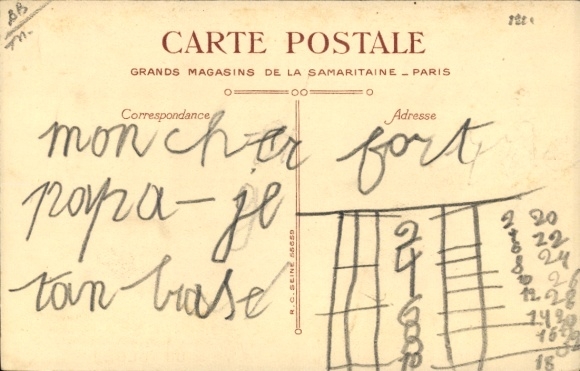 BB
CARTE POSTALE
GRANDS MAGASINS DE LA SAMARITAINE _ PARIS
Correspondance
Adresse
mon cher fort
papa - je
tan brase
R.C. SEINE 55659
2 20
22
8 24
10 26
12 28
14
16
18
2
4
6
8
10